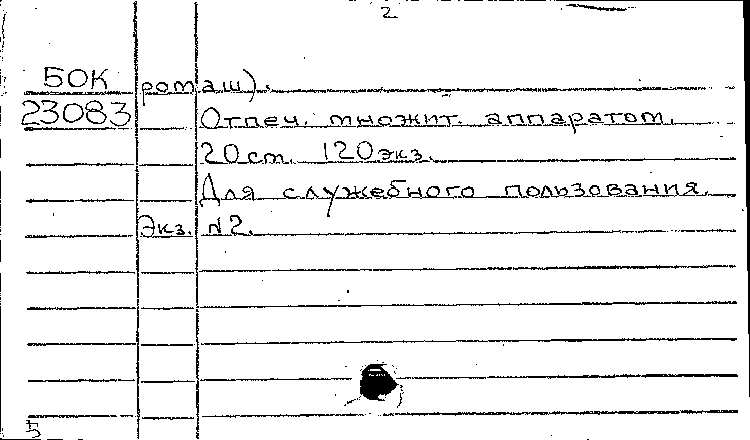 2
50К роташ).
23083 Отпеч. множит. аппаратом.
20 ст. 120 экз.
Для служебного пользования.
Экз. №2.
5